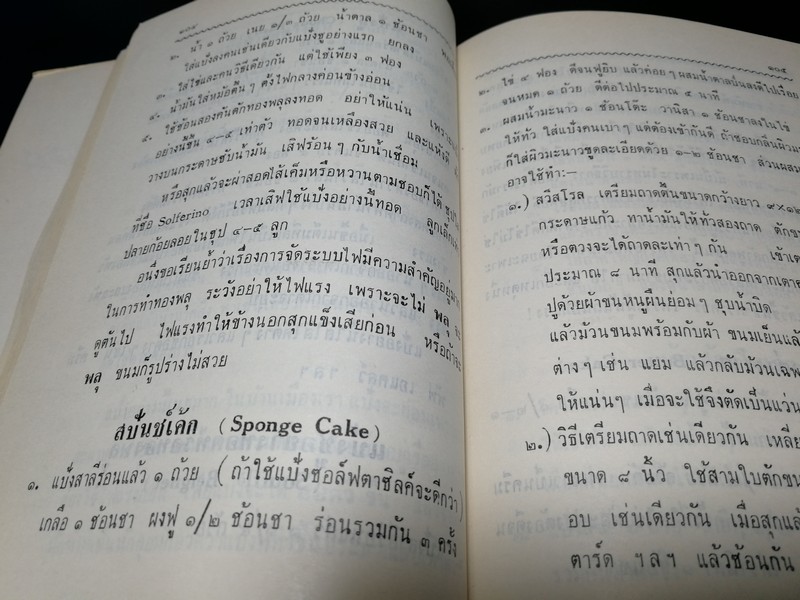 ๒๐๔
๒. น้ำ ๑ ถ้วย เนย ๑/๓ ถ้วย น้ำตาล ๑ ช้อนชา
ใส่แป้งลงคนเช่นเดียวกับแป้งชูอย่างแรก ยกลง
๓. ใส่ไข่และคนวิธีเดียวกัน แต่ใช้เพียง ๓ ฟอง
๔. น้ำมันใส่หม้อตื้นๆ ตั้งไฟกลางค่อนข้างอ่อน
๕. ใช้ช้อนสองคันตักทองพลุลงทอด อย่าให้แน่น
อย่างนี้ขึ้น ๔-๕ เท่าตัว ทอดจนเหลืองสวย และแห้งดี
วางบนกระดาษซับน้ำมัน เสิฟร้อนๆ กับน้ำเชื่อม
หรือสุกแล้วจะผ่าสอดไส้เค็มหรือหวานตามชอบก็ได้
ที่ชื่อ Solferino เวลาเสิฟใช้แป้งอย่างนี้ทอด
ปลายก้อยลอยในซุป ๔-๕ ลูก
อนึ่งขอเรียนย้ำว่าเรื่องการจัดระบบไฟมีความสำคัญอยู่
ในการทำทองพลุ ระวังอย่าให้ไฟแรง เพราะจะไม่ พลุ
ดูตันไป ไฟแรงทำให้ข้างนอกสุกแข็งเสียก่อน
พลุ ขนมก็รูปร่างไม่สวย
สปันช์เค้ก (Sponge Cake)
๑. แป้งสาลีร่อนแล้ว ๑ ถ้วย (ถ้าใช้แป้งซอล์ฟตาซิลค์จะดีกว่า)
เกลือ ๑ ช้อนชา ผงฟู ๑/๒ ช้อนชา ร่อนรวมกัน ๓ ครั้ง
๒๐๕
๒. ไข่ ๔ ฟอง ตีจนฟูยิบ แล้วค่อยๆ ผสมน้ำตาลป่นลงตีไปเรื่อย
จนหมด ๑ ถ้วย ตีต่อไปประมาณ ๕ นาที
๓. ผสมน้ำมะนาว ๑ ช้อนโต๊ะ วานิลา ๑ ช้อนชาลงในไข่
ให้ทั่ว ใส่แป้งคนเบาๆ แต่ต้องเข้ากันดี ถ้าชอบกลิ่นผิวมะ
ก็ใส่ผิวมะนาวขูดละเอียดด้วย ๑-๒ ช้อนชา ส่วนผสม
อาจใช้ทำ:—
๑.) สวิสโรล เตรียมถาดตื้นขนาดกว้างยาว ๙×๑๒
กระดาษแก้ว ทาน้ำมันให้ทั่วสองถาด ตักข
หรือตวงจะได้ถาดละเท่าๆ กัน เข้าเต
ประมาณ ๘ นาที สุกแล้วนำออกจากเตาค
ปูด้วยผ้าขนหนูผืนย่อมๆ ชุบน้ำบิด
แล้วม้วนขนมพร้อมกับผ้า ขนมเย็นแล้
ต่างๆ เช่น แยม แล้วกลับม้วนเฉพ
ให้แน่นๆ เมื่อจะใช้จึงตัดเป็นแว่น
๒.) วิธีเตรียมถาดเช่นเดียวกัน เหลี่ย
ขนาด ๘ นิ้ว ใช้สามใบตักขน
อบ เช่นเดียวกัน เมื่อสุกแล้
ตาร์ด ฯลฯ แล้วซ้อนกัน